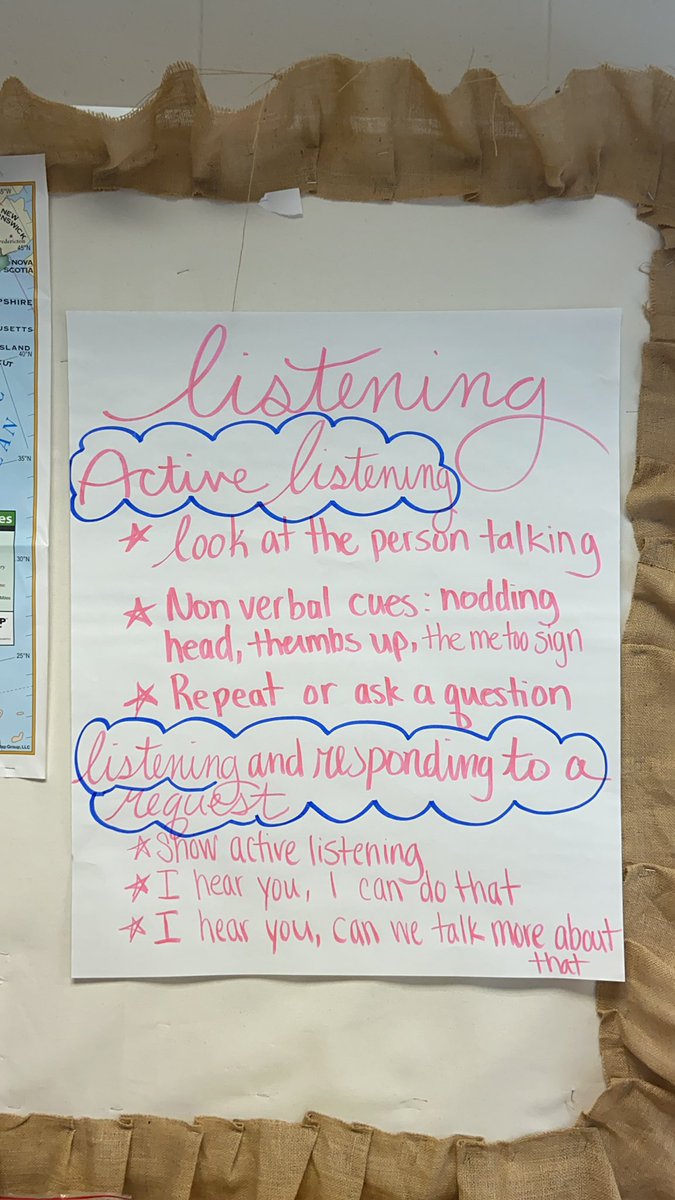 45°W
NEW
Fredericton
45°N
NOVA
SCOTIA
40°N
35°N
30°N
25°N
listening
Active listening
look at the person talking
Non verbal cues: nodding
head, thumbs up, the me too sign
Repeat or ask a question
listening and responding to a
request
Show active listening
I hear you, I can do that
I hear you, can we talk more about
that